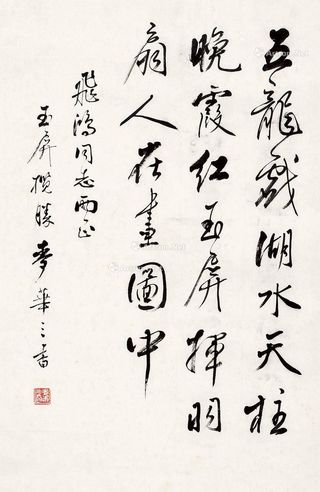 五龍戲湖水天柱
晚霞紅玉屏揮明
扇人在畫圖中
飛鴻同志正
玉屏攬勝 麥華三書